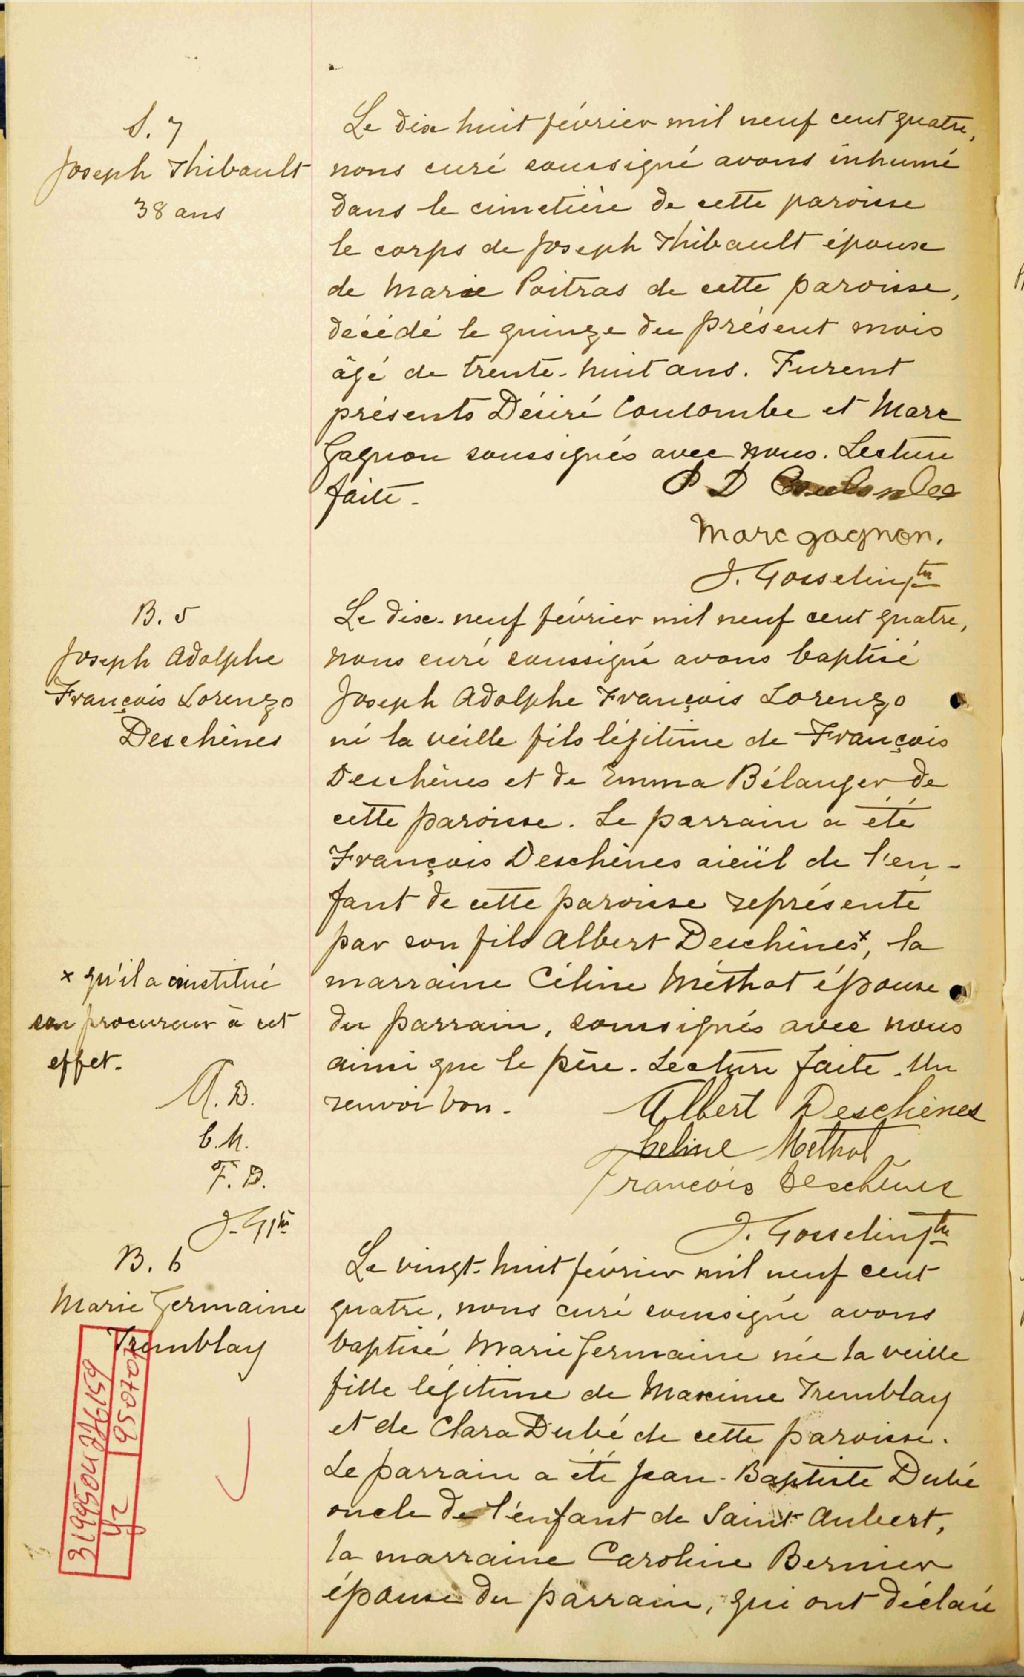 S. 7
Joseph Thibault
38 ans
Le dix huit février mil neuf cent quatre,
nous curé soussigné avons inhumé
dans le cimetière de cette paroisse
le corps de Joseph Thibault époux
de Marie Poitras de cette paroisse,
décédé le quinze du présent mois
âgé de trente-huit ans. Furent
présents Désiré Coulombe et Marc
Gagnon soussignés avec nous. Lecture
faite.
P D Coulombe
Marc gagnon.
J. Gosselin ptre
B. 5
Joseph Adolphe
François Lorenzo
Deschênes
Le dix-neuf février mil neuf cent quatre,
nous curé soussigné avons baptisé
Joseph Adolphe François Lorenzo
né la veille fils légitime de François
Deschênes et de Emma Bélanger de
cette paroisse. Le parrain a été
François Deschênes aieül de l'en-
fant de cette paroisse représenté
par son fils Albert Deschênes x, la
marraine Céline Méthot épouse
du parrain, soussignés avec nous
ainsi que le père. Lecture faite. Un
renvoi bon.
x qu'il a constitué
son procureur à cet
effet.
A. D.
C. M.
F. D.
J. G ptre
Albert Deschênes
Celine Methot
Francois Deschênes
J. Gosselin ptre
B. 6
Marie Germaine
Tremblay
Le vingt-huit février mil neuf cent
quatre, nous curé soussigné avons
baptisé Marie Germaine née la veille
fille légitime de Maxime Tremblay
et de Clara Dubé de cette paroisse.
Le parrain a été Jean-Baptiste Dubé
oncle de l'enfant de Saint Aubert,
la marraine Caroline Bernier
épouse du parrain, qui ont déclaré